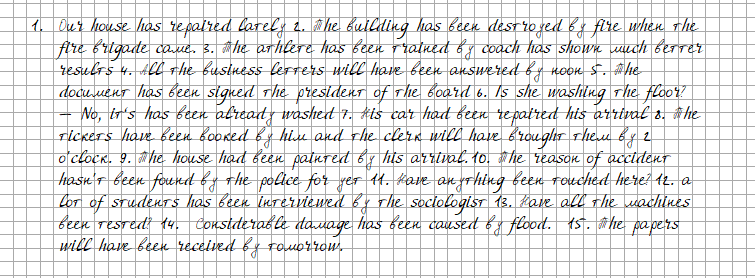 1. Our house has repaired lately 2. The building has been destroyed by fire when the
fire brigade came. 3. The athlete has been trained by coach has shown much better
results 4. All the business letters will have been answered by noon 5. The
document has been signed the president of the board 6. Is she washing the floor?
– No, it's has been already washed 7. His car had been repaired his arrival 8. The
tickets have been booked by him and the clerk will have brought them by 2
o'clock. 9. The house had been painted by his arrival. 10. The reason of accident
hasn't been found by the police for yet 11. Have anything been touched here? 12. a
lot of students has been interviewed by the sociologist 13. Have all the machines
been tested? 14. Considerable damage has been caused by flood. 15. The papers
will have been received by tomorrow.